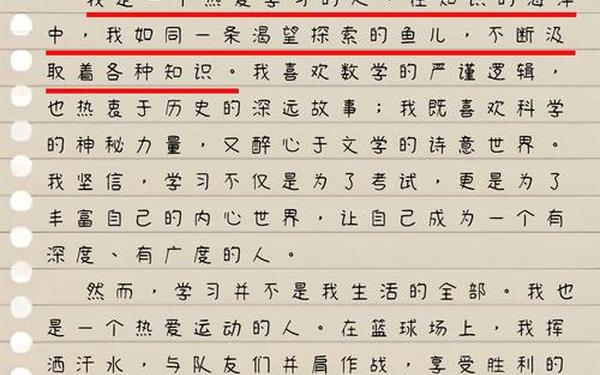 我是一个热爱学习的人。在知识的海洋
中，我如同一条渴望探索的鱼儿，不断汲
取着各种知识。我喜欢数学的严谨逻辑，
也热衷于历史的深远故事；我既喜欢科学
的神秘力量，又醉心于文学的诗意世界。
我坚信，学习不仅是为了考试，更是为了
丰富自己的内心世界，让自己成为一个有
深度、有广度的人。
然而，学习并不是我生活的全部。我也
是一个热爱运动的人。在篮球场上，我挥
洒汗水，与队友们并肩作战，享受胜利的